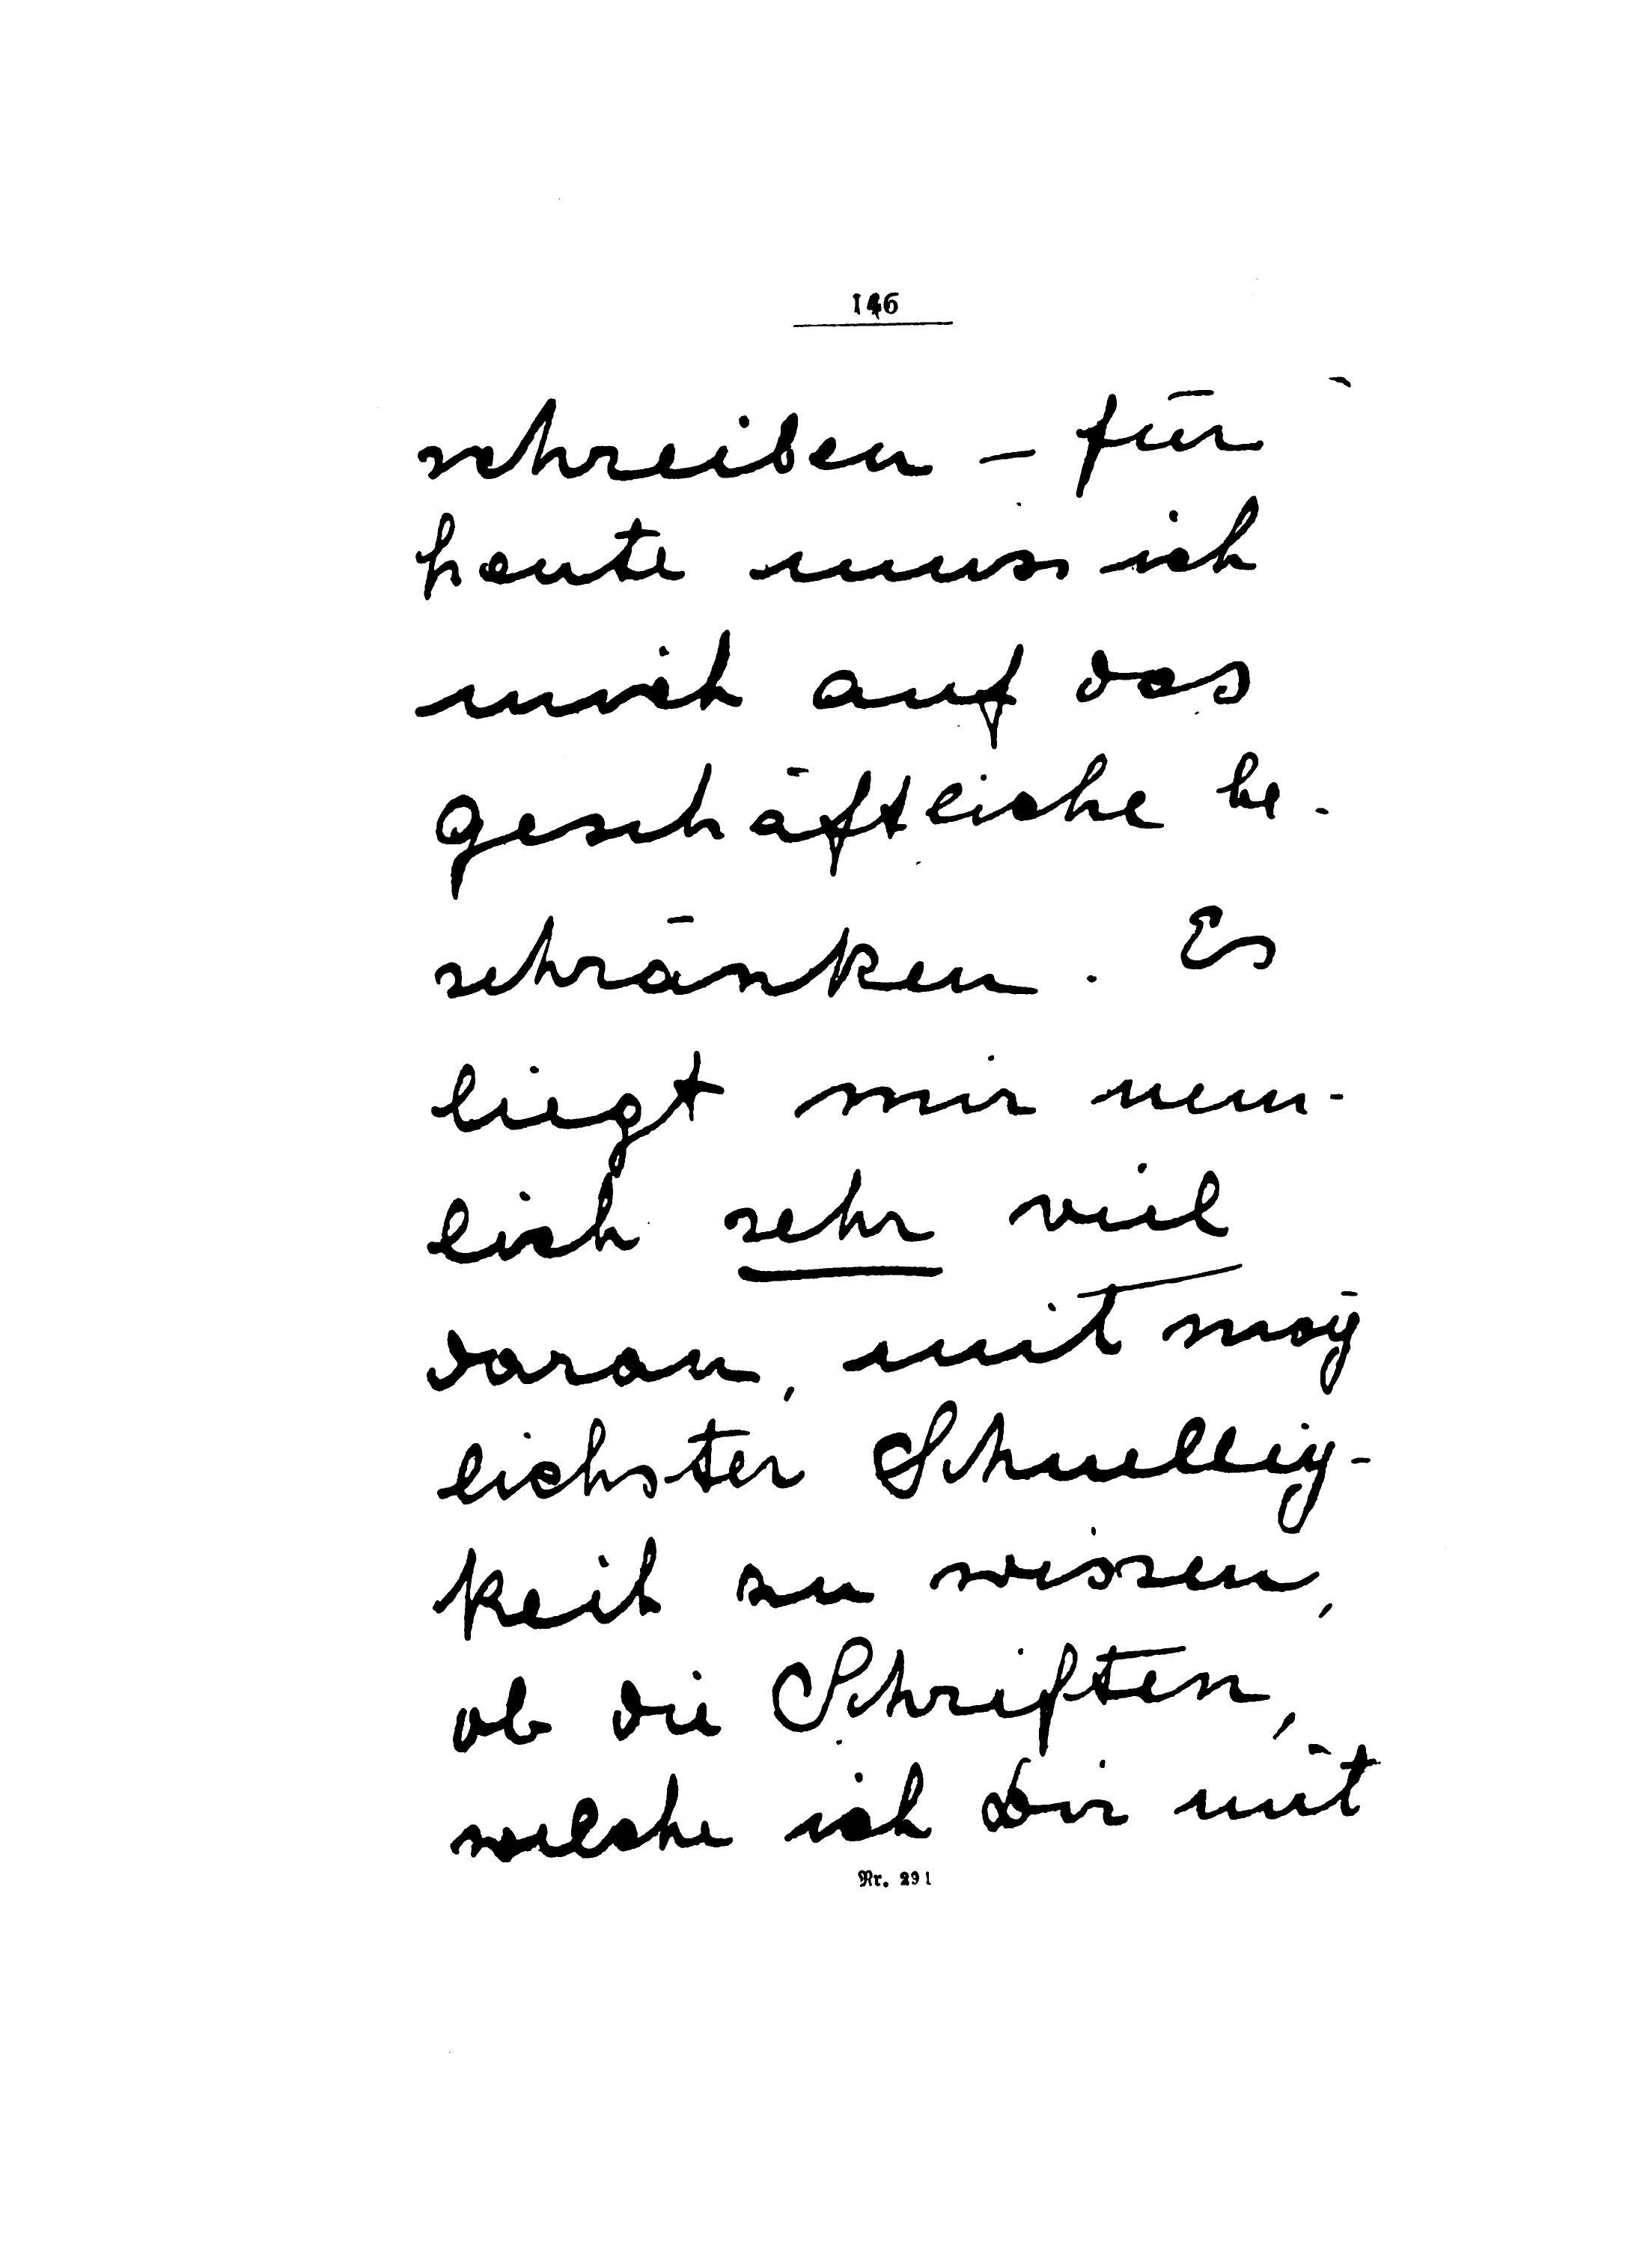 146
schreiben – für
heute muss ich
mich auf das
geschäftliche be-
schränken. Es
liegt mir nem-
lich sehr viel
daran, mit mög
lichster Schnellig-
keit zu wissen,
ob die Schriften,
welche ich Dir mit
Nr. 291